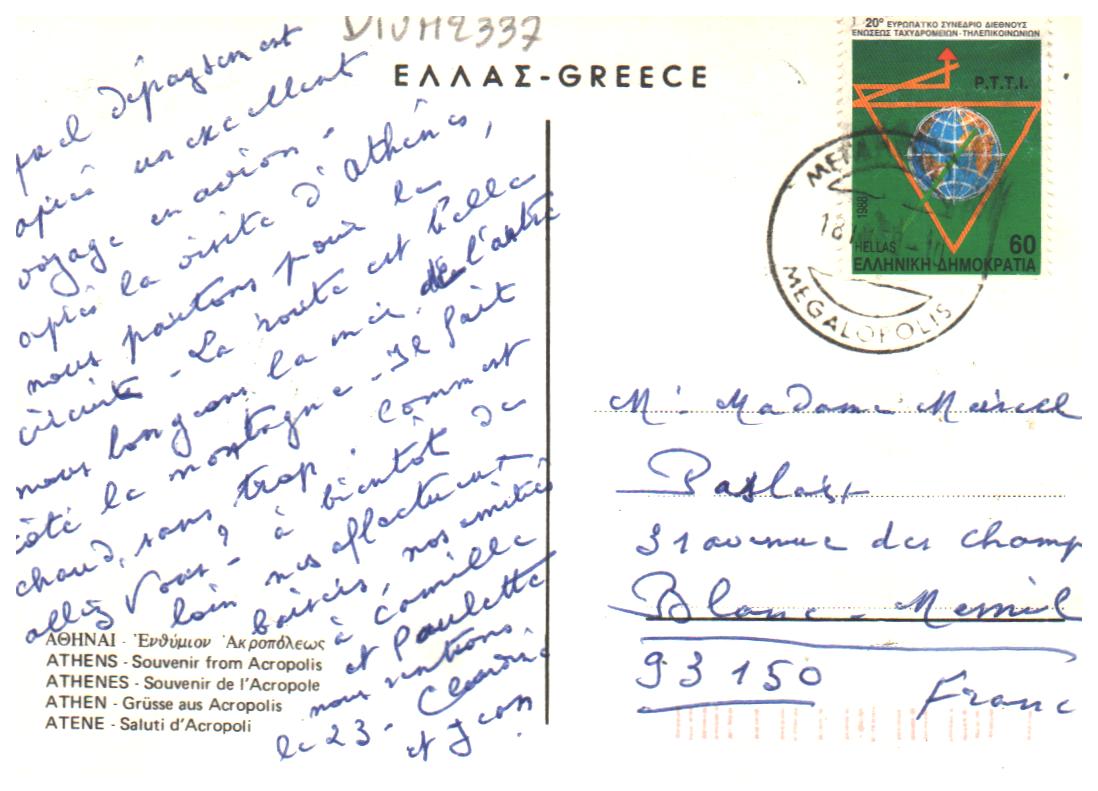 DIVM2337
ΕΛΛΑΣ-GREECE
20° ΕΥΡΩΠΑΪΚΟ ΣΥΝΕΔΡΙΟ ΔΙΕΘΝΟΥΣ
ΕΝΩΣΕΩΣ ΤΑΧΥΔΡΟΜΕΙΩΝ-ΤΗΛΕΠΙΚΟΙΝΩΝΙΩΝ
P.T.T.I.
1988
HELLAS
60
ΕΛΛΗΝΙΚΗ ΔΗΜΟΚΡΑΤΙΑ
MEGALOPOLIS
quel dépaysement
après un excellent
voyage en avion.
après la visite d'Athènes,
nous partons pour le
circuit - La route est belle
nous longeons la mer, de l'autre
côté la montagne - Il fait
chaud, sans trop. Comment
allez vous - ? à bientôt de
loin nos affectueux
baisers, nos amitiés
à Camille
et Paulette
nous rentrons
le 23 - Claudine
et Jean
ΑΘΗΝΑΙ - Ἐνθύμιον Ἀκροπόλεως
ATHENS - Souvenir from Acropolis
ATHENES - Souvenir de l'Acropole
ATHEN - Grüsse aus Acropolis
ATENE - Saluti d'Acropoli
Mr Madame Marcel
31 avenue des champ
Blanc-Mesnil
93150
France